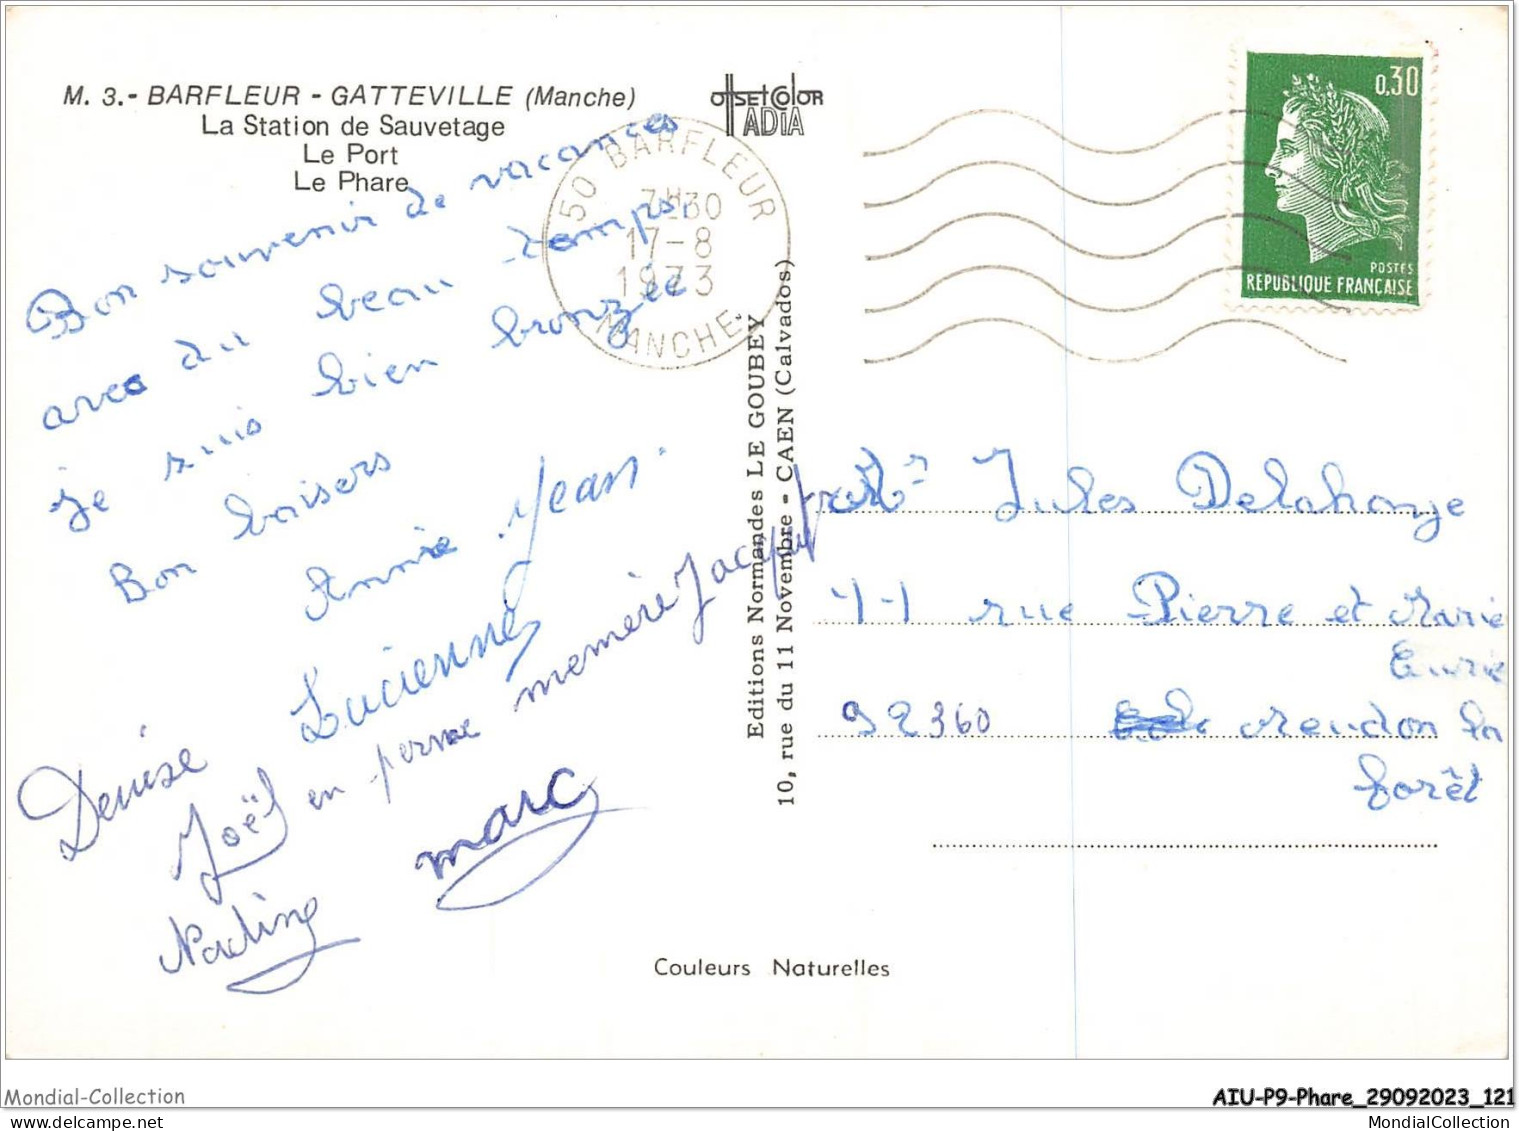 M. 3.- BARFLEUR - GATTEVILLE (Manche)
La Station de Sauvetage
Le Port
Le Phare
OffSET COLOR
ADIA
50 BARFLEUR
7H30
17-8
1973
MANCHE
0,30
POSTES
REPUBLIQUE FRANÇAISE
Bon souvenir de vacances
avec du beau temps,
je suis bien bronzée
Bon baisers
Annie Jean
Lucienne
Denise
Joël en perme memère Jacques
marc
Nadine
Editions Normandes LE GOUBEY
10, rue du 11 Novembre - CAEN (Calvados)
Mr Jules Delahaye
11 rue Pierre et Marie
Curie
92360 meudon la
forêt
Couleurs Naturelles
Mondial-Collection
AIU-P9-Phare_29092023_121
MondialCollection